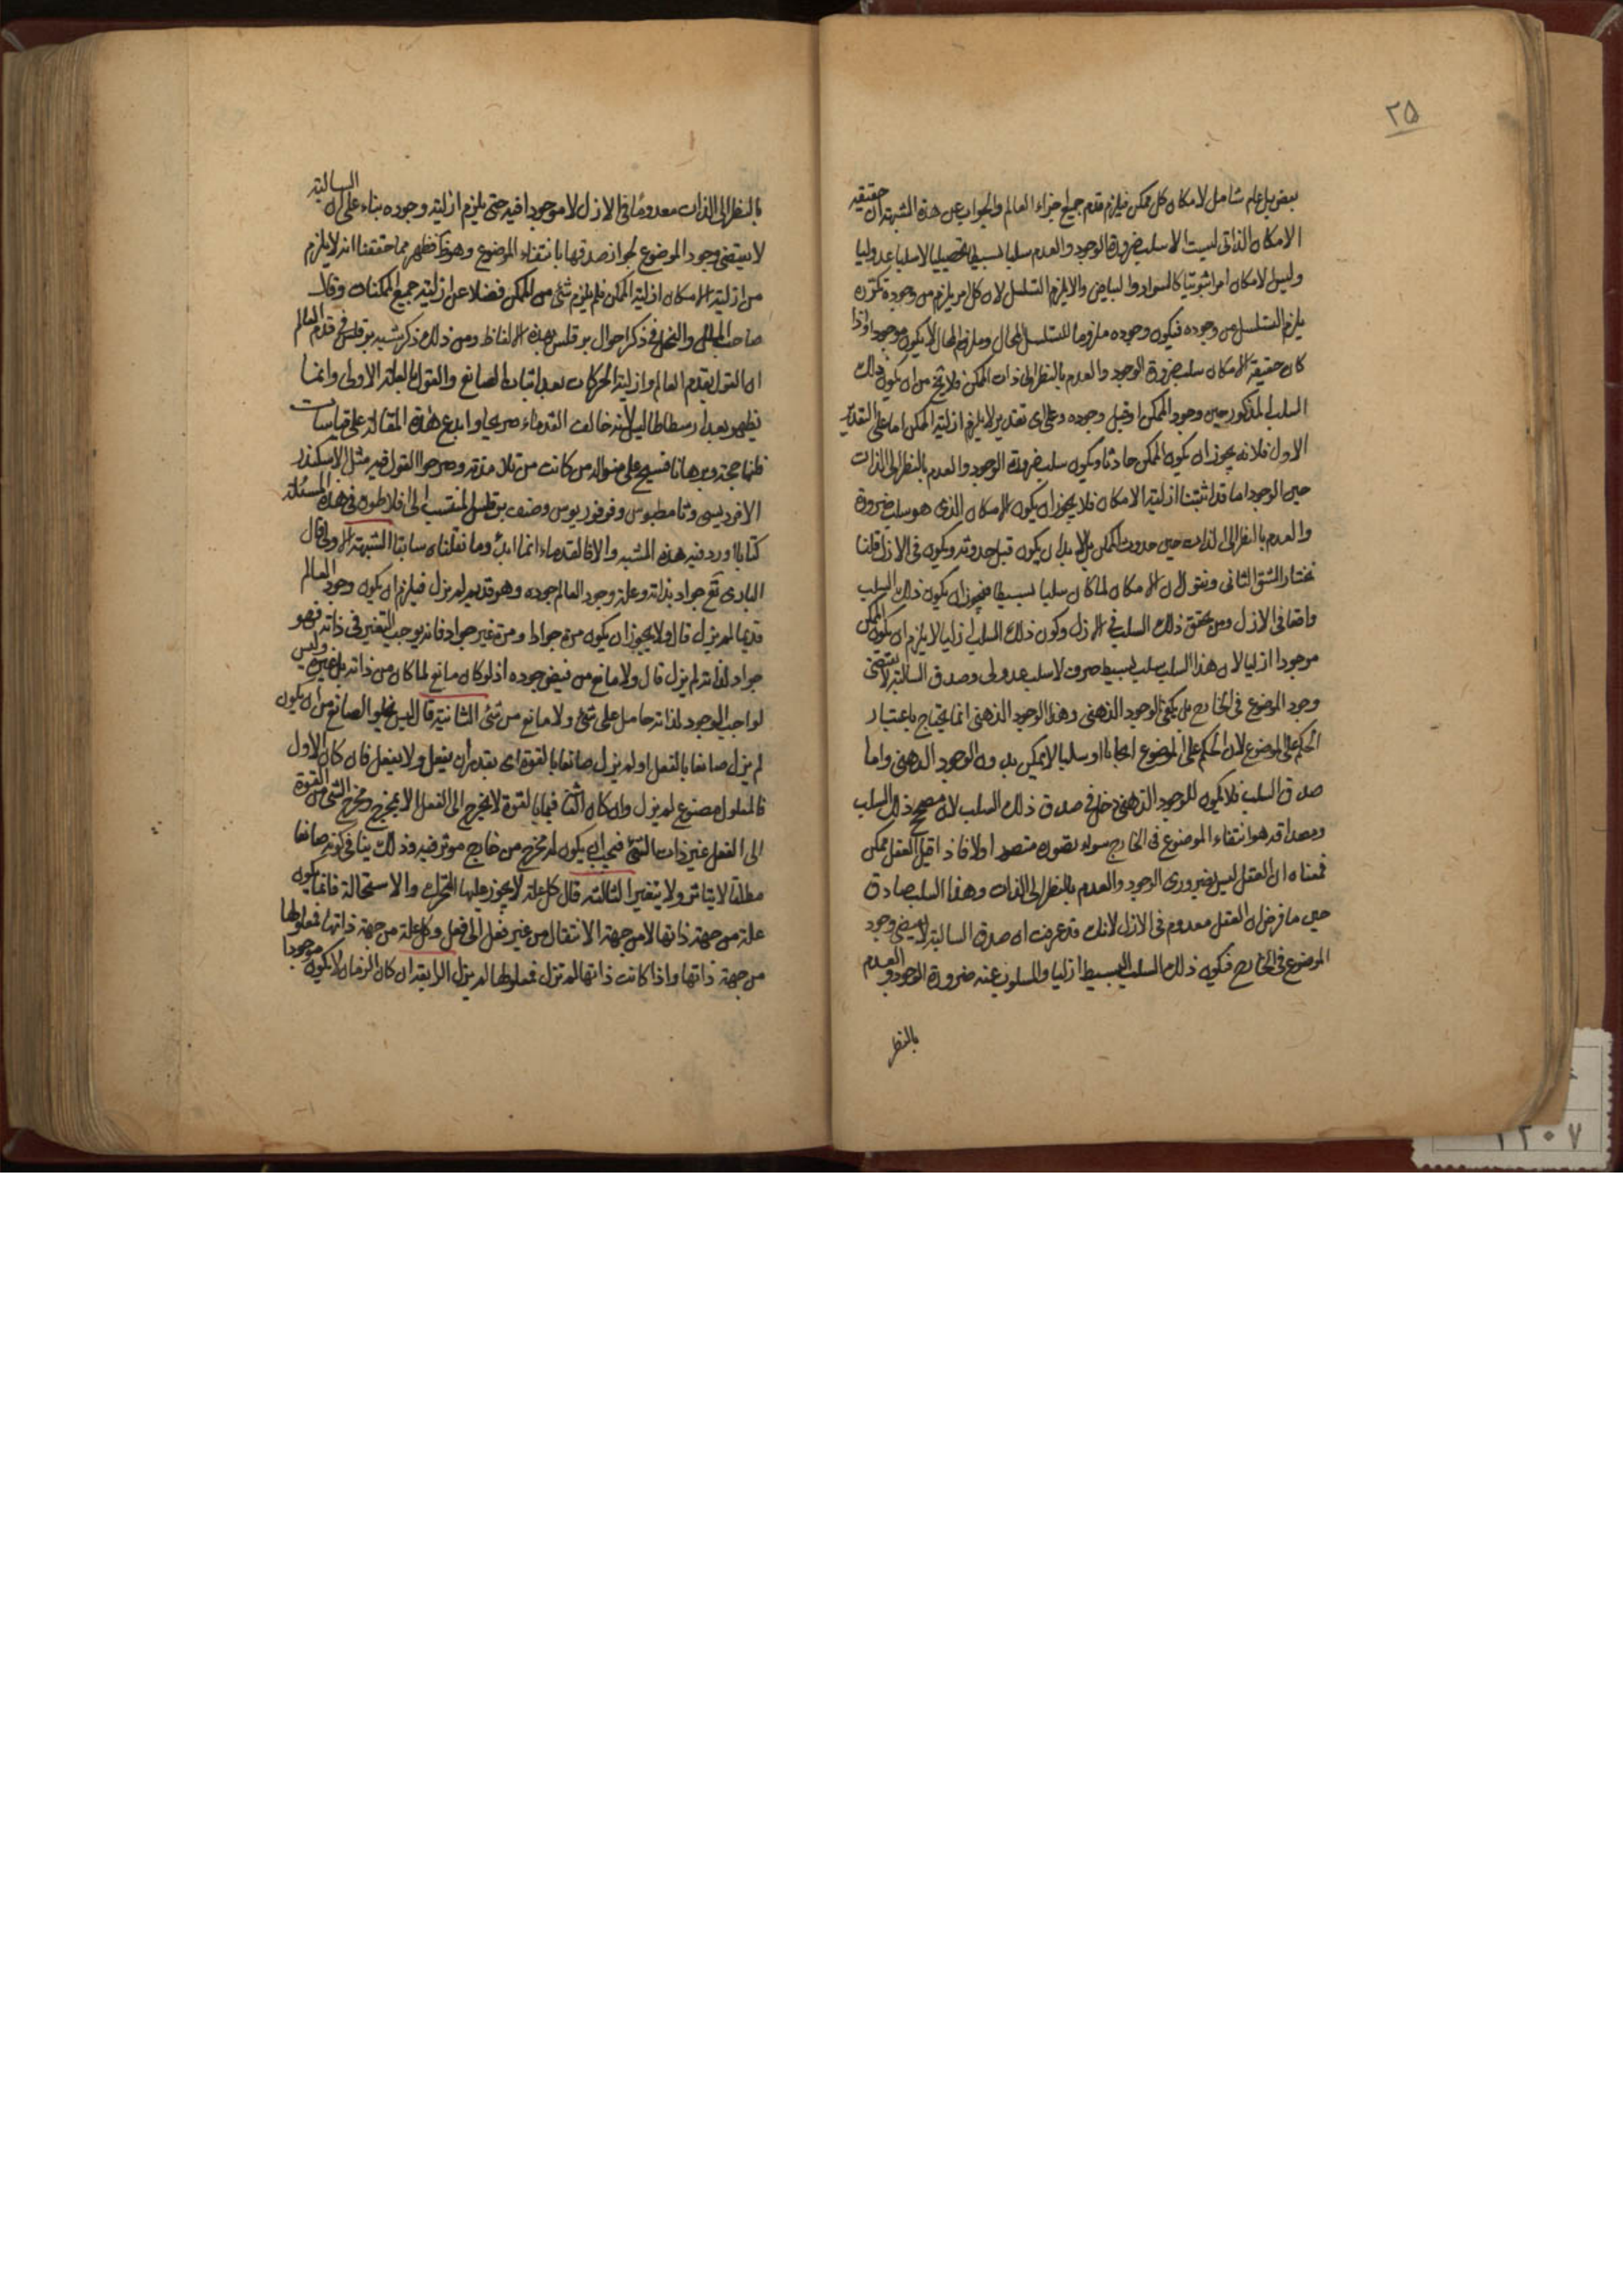 ۲۵
بعض بل عام شامل لامكان كل ممكن فيلزم قدم جميع اجزاء العالم والجواب عن هذة الشبهة ان حقيقة
الامكان الذاتى ليست الا سلب ضرورة الوجود والعدم سلبا بسيطا تحصيليا لا سلبا عدوليا
وليس الامكان امرا ثبوتيا كالسواد والبياض والا يلزم التسلسل لان كل امر يلزم من وجوده تكرره
يلزم التسلسل من وجوده فيكون وجوده ملزوما للتسلسل المحال وملزوم المحال لا يكون موجودا واذا
كان حقيقة الامكان سلب ضرورة الوجود والعدم بالنظر الى ذات الممكن فلا يخ من ان يكون ذلك
السلب المذكور حين وجود الممكن او قبل وجوده وعلى اى تقدير لا يلزم ازلية الممكن اما على التقدير
الاول فلانه يجوز ان يكون الممكن حادثا ويكون سلب ضرورة الوجود والعدم بالنظر الى الذات
حين الوجود اما قد اثبتنا ازلية الامكان فلا يجوز ان يكون الامكان الذى هو سلب ضرورة
والعدم بالنظر الى الذات حين حدوث الممكن بل لا بد ان يكون قبل حدوثه ويكون فى الازل قلنا
نختار الشق الثانى ونقول ان الامكان لما كان سلبا بسيطا فيجوز ان يكون ذلك السلب
واقعا فى الازل ومن تحقق ذلك السلب فى الازل وكون ذلك السلب ازليا لا يلزم ان يكون الممكن
موجودا ازليا لان هذا السلب سلب بسيط صرف لا سلب عدولى وصدق السالبة لا يقتضى
وجود الموضوع فى الخارج بل يكفى الوجود الذهنى وهذا الوجود الذهنى انما يحتاج باعتبار
الحكم على الموضوع لان الحكم على الموضوع ايجابا او سلبا لا يمكن بدون الوجود الذهنى واما
صدق السلب فلا يكون للوجود الذهنى دخل فى صدق ذلك السلب لان مصحح ذلك السلب
ومصداقه هو انتفاء الموضوع فى الخارج سواء تصوره متصور اولا فاذا قيل العقل ممكن
فمعناه ان العقل ليس ضرورى الوجود والعدم بالنظر الى الذات وهذا السلب صادق
حين ما فرض ان العقل معدوم فى الازل لانك قد عرفت ان صدق السالبة لا يقتضى وجود
الموضوع فى الخارج فيكون ذلك السلب البسيط ازليا والمسلوب عنه ضرورة الوجود والعدم
بالنظر
بالنظر الى الذات معدوما فى الازل لا موجودا فيه حتى يلزم ازلية وجوده بناء على ان السالبة
لا يقتضى وجود الموضوع لجواز صدقها بانتفاء الموضوع وهو ظ فظهر مما حققنا انه لا يلزم
من ازلية الامكان ازلية الممكن فلم يلزم شئ من الممكن فضلا عن ازلية جميع الممكنات وقال
صاحب الملل والنحل فى ذكر احوال برقلس بهذه الالفاظ ومن ذلك ذكر شبه برقلس فى قدم العالم
ان القول بقدم العالم وازلية الحركات بعد اثبات الصانع والقول بالعلة الاولى وانما
يظهر بعد ارسطاطاليس لانه خالف القدماء صريحا وابدع هذه المقالة على قياسات
ظنها حجة وبرهانا فنسج على منواله من كانت من تلامذته وصرحوا القول فيه مثل الاسكندر
الافرديسى وثامطيوس وفرفوريوس وصنف برقلس المنتسب الى افلاطون فى هذه المسئلة
كتابا اورد فيه هذه الشبه والا فالقدماء انما ابدوا ما نقلناه سابقا الشبهة الاولى قال
البارى تع جواد بذاته وعلة وجود العالم جوده وهو قديم لم يزل فيلزم ان يكون وجود العالم
قديما لم يزل قال ولا يجوز ان يكون مرة جوادا ومرة غير جواد فانه يوجب التغير فى ذاته فهو
جواد لذاته لم يزل قال ولا مانع من فيض جوده اذ لو كان مانع لما كان من ذاته بل من غيره وليس
لواجب الوجود لذاته حامل على شئ ولا مانع من شئ الثانية قال ليس يخلو الصانع من ان يكون
لم يزل صانعا بالفعل او لم يزل صانعا بالقوة اى يقدر ان يفعل ولا يفعل فان كان الاول
فالمعلول مصنوع لم يزل وان كان الثانى فما بالقوة لا يخرج الى الفعل الا بمخرج ومخرج الشئ من القوة
الى الفعل غير ذات الشئ فيجب ان يكون له مخرج من خارج موثر فيه وذلك ينافى كونه صانعا
مطلقا لا يتاثر ولا يتغير الثالثة قال كل علة لا يجوز عليها التحرك والاستحالة فانما يكون
علة من جهة ذاتها لا من جهة الانتقال من غير فعل الى فعل وكل علة من جهة ذاتها فمعلولها
من جهة ذاتها واذا كانت ذاتها لم تزل فمعلولها لم يزل الرابعة ان كان الزمان لا يكون موجودا